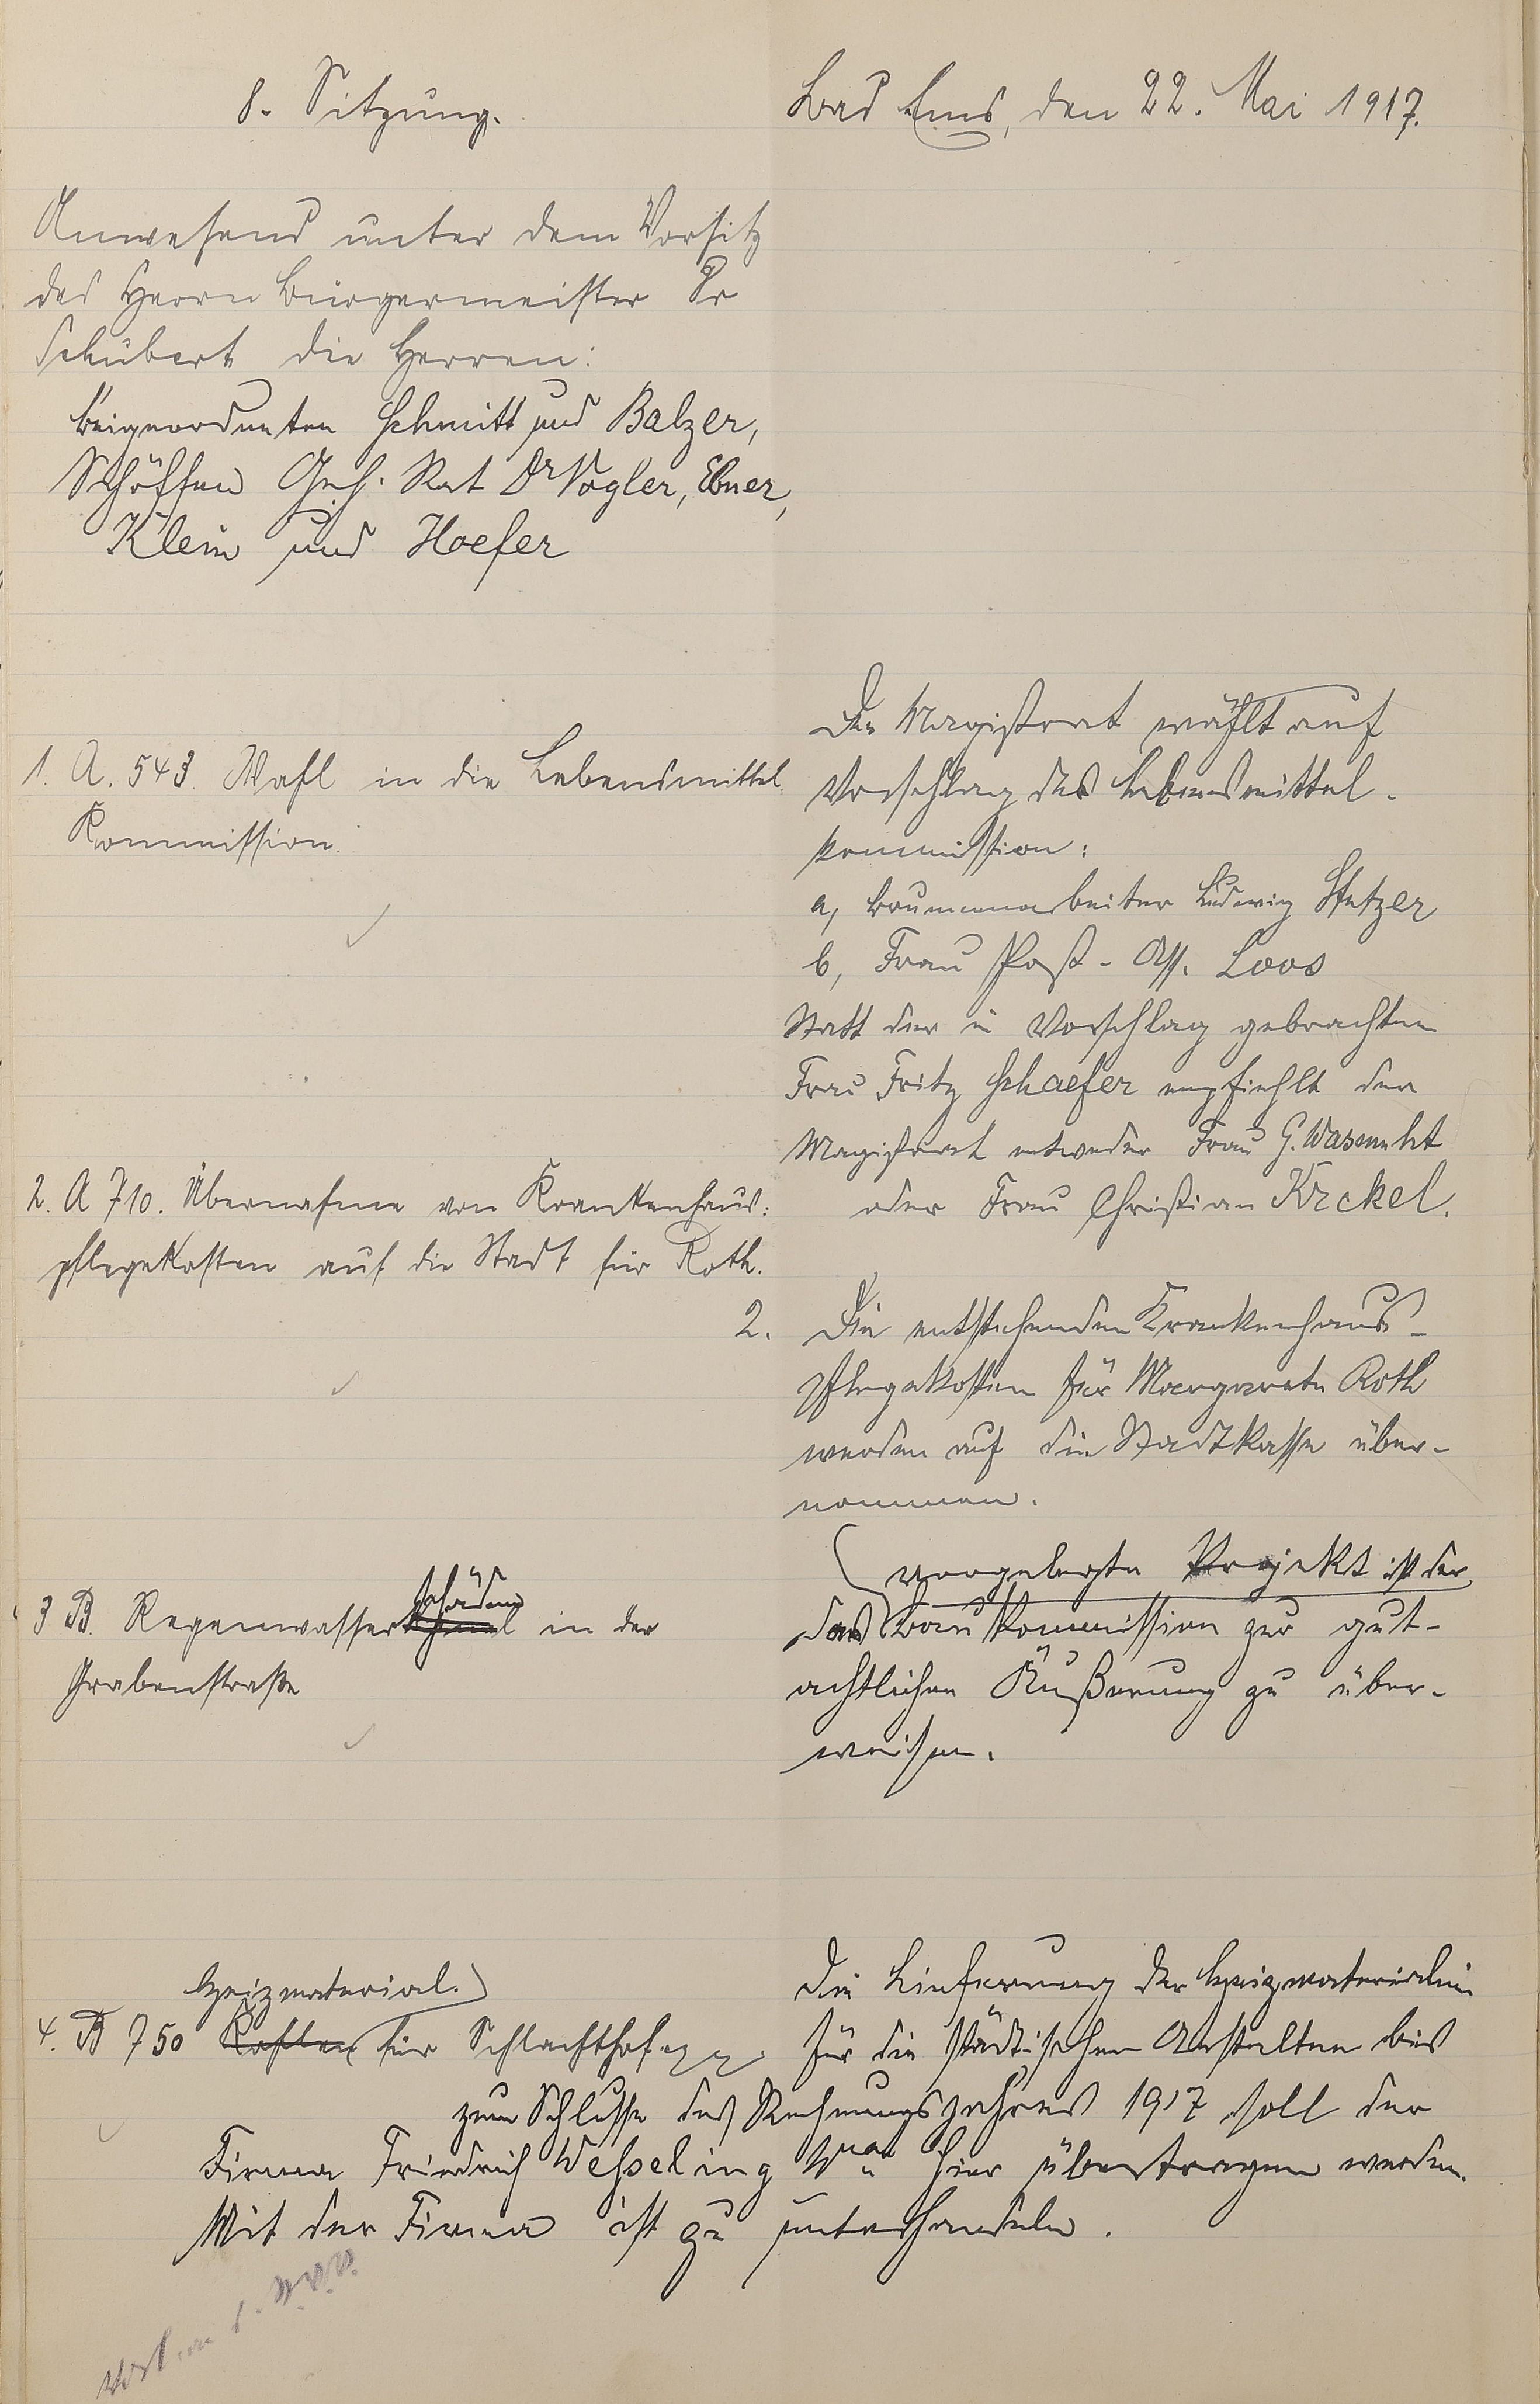 8. Sitzung.
Bad Ems, den 22. Mai 1917.
Anwesend unter dem Vorsitz
des Herrn Bürgermeister Dr
Schubert die Herren:
Beigeordneten Schmitt und Balzer,
Schöffen Geh. Rat Dr Vogler, Ebner,
Klein und Hoefer
1. A. 543. Wahl in die Lebensmittel
Kommission.
Der Magistrat wählt auf
Vorschlag des Lebensmittel-
kommission:
a, Ludwig Stetzer
b, Frau Post-Ass. Loos
Statt der in Vorschlag gebrachten
Frau Fritz Schaefer empfiehlt der
Magistrat entweder Frau G. Wasmuht
oder Frau Christian
2. A 710. Übernahme von Krankenhaus:
pflegekosten auf die Stadt für Roth.
2. Die entstehenden Krankenhaus-
pflegekosten für Margarete Roth
werden auf die Stadtkasse über-
nommen.
3 B. Regenwasserschäden in der
Grabenstraße
das vorgelegte Projekt ist der
Baukommission zur gut-
achtlichen Äußerung zu über-
weisen.
4. B 750 Kohlen Heizmaterial. für Schlachthof
Die Lieferung der Heizmaterialien
für die städtischen Anstalten bis
zum Schlusse des Rechnungsjahres 1917 soll der
Firma Friedrich Wesseling Wwe hier übertragen werden.
Mit der Firma ist zu unterhandeln.